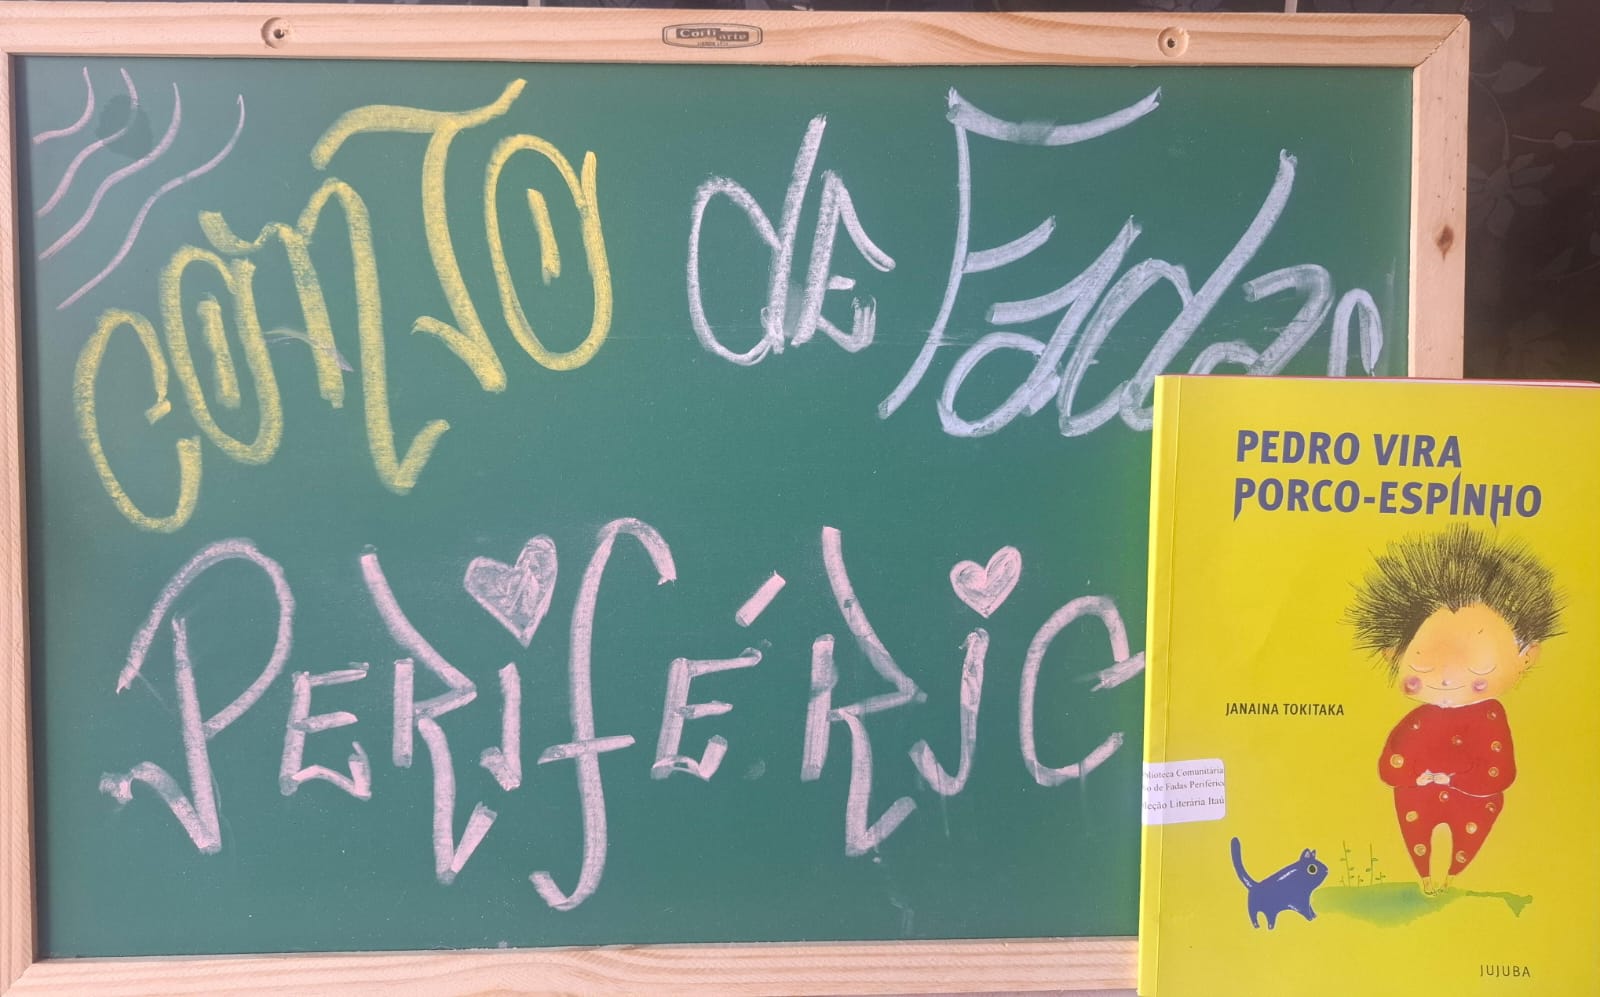 Corti arte
CONTO de Fadas
PERIFÉRIC
PEDRO VIRA
PORCO-ESPINHO
JANAINA TOKITAKA
blioteca Comunitária
to de Fadas Periféric
leção Literária Itaú
JUJUBA